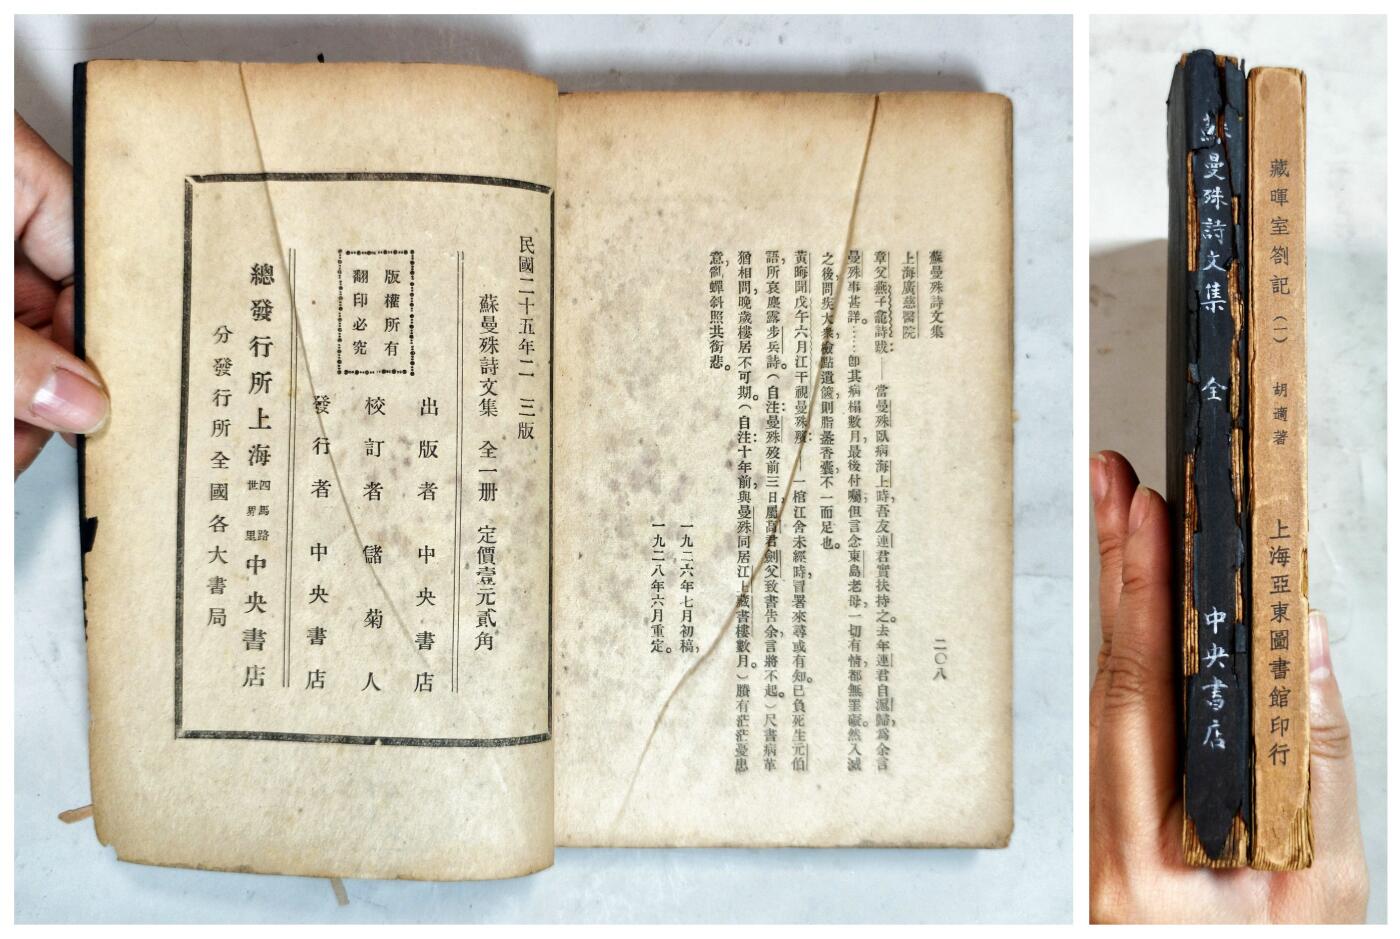 民國二十五年二三版
蘇曼殊詩文集 全一册 定價壹元貳角
出版者 中央書店
校訂者 儲菊人
發行者 中央書店
版權所有
翻印必究
總發行所上海四馬路世界里中央書店
分發行所全國各大書局
蘇曼殊詩文集
二〇八
上海廣慈醫院
章父燕子龕詩跋:——當曼殊臥病海上時,吾友連君實扶持之。去年連君自滬歸,爲余言
曼殊事甚詳。……卽其病榻數月,最後付囑,但言念東島老母,一切有情,都無罣礙。然入滅
之後,問疾大衆,檢點遺篋,則脂盝香囊,不一而足也。
黃晦聞戊午六月江干視曼殊殯:——一棺江舍未經時,冒暑來尋或有知。已負死生元伯
語,所哀塵露步兵詩。(自注:曼殊歿前三日,屬高君劍父致書告余,言將不起。)尺書病革
猶相問,晚歲樓居不可期。(自注:十年前與曼殊同居江上藏書樓數月。)賸有茫茫憂患
意,亂蟬斜照共銜悲。
一九二六年七月初稿,
一九二八年六月重定。
蘇曼殊詩文集 全 中央書店
藏暉室劄記(一) 胡適著 上海亞東圖書館印行